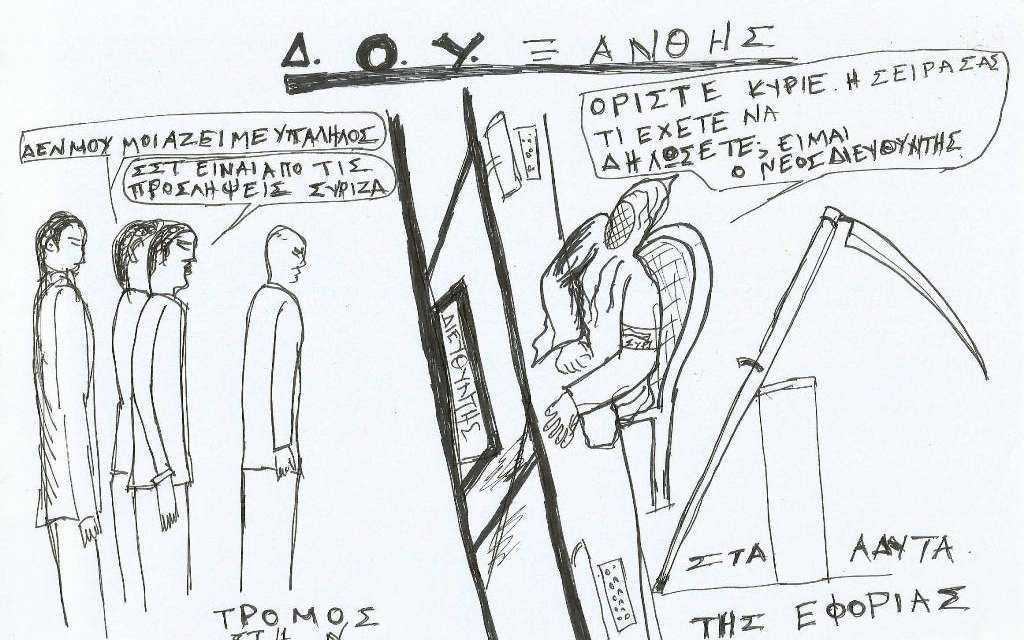 Δ. Ο. Υ. ΞΑΝΘΗΣ
ΔΕΝ ΜΟΥ ΜΟΙΑΖΕΙ ΜΕ ΥΠΑΛΗΛΟΣ
ΣΣΤ ΕΙΝΑΙ ΑΠΟ ΤΙΣ
ΠΡΟΣΛΗΨΕΙΣ ΣΥΡΙΖΑ
ΟΡΙΣΤΕ ΚΥΡΙΕ. Η ΣΕΙΡΑ ΣΑΣ
ΤΙ ΕΧΕΤΕ ΝΑ
ΔΗΛΩΣΕΤΕ; ΕΙΜΑΙ
Ο ΝΕΟΣ ΔΙΕΥΘΥΝΤΗΣ.
ΔΙΕΥΘΥΝΤΗΣ
ΣΥΡ
ΣΤΑ ΑΔΥΤΑ
ΤΗΣ ΕΦΟΡΙΑΣ
ΤΡΟΜΟΣ